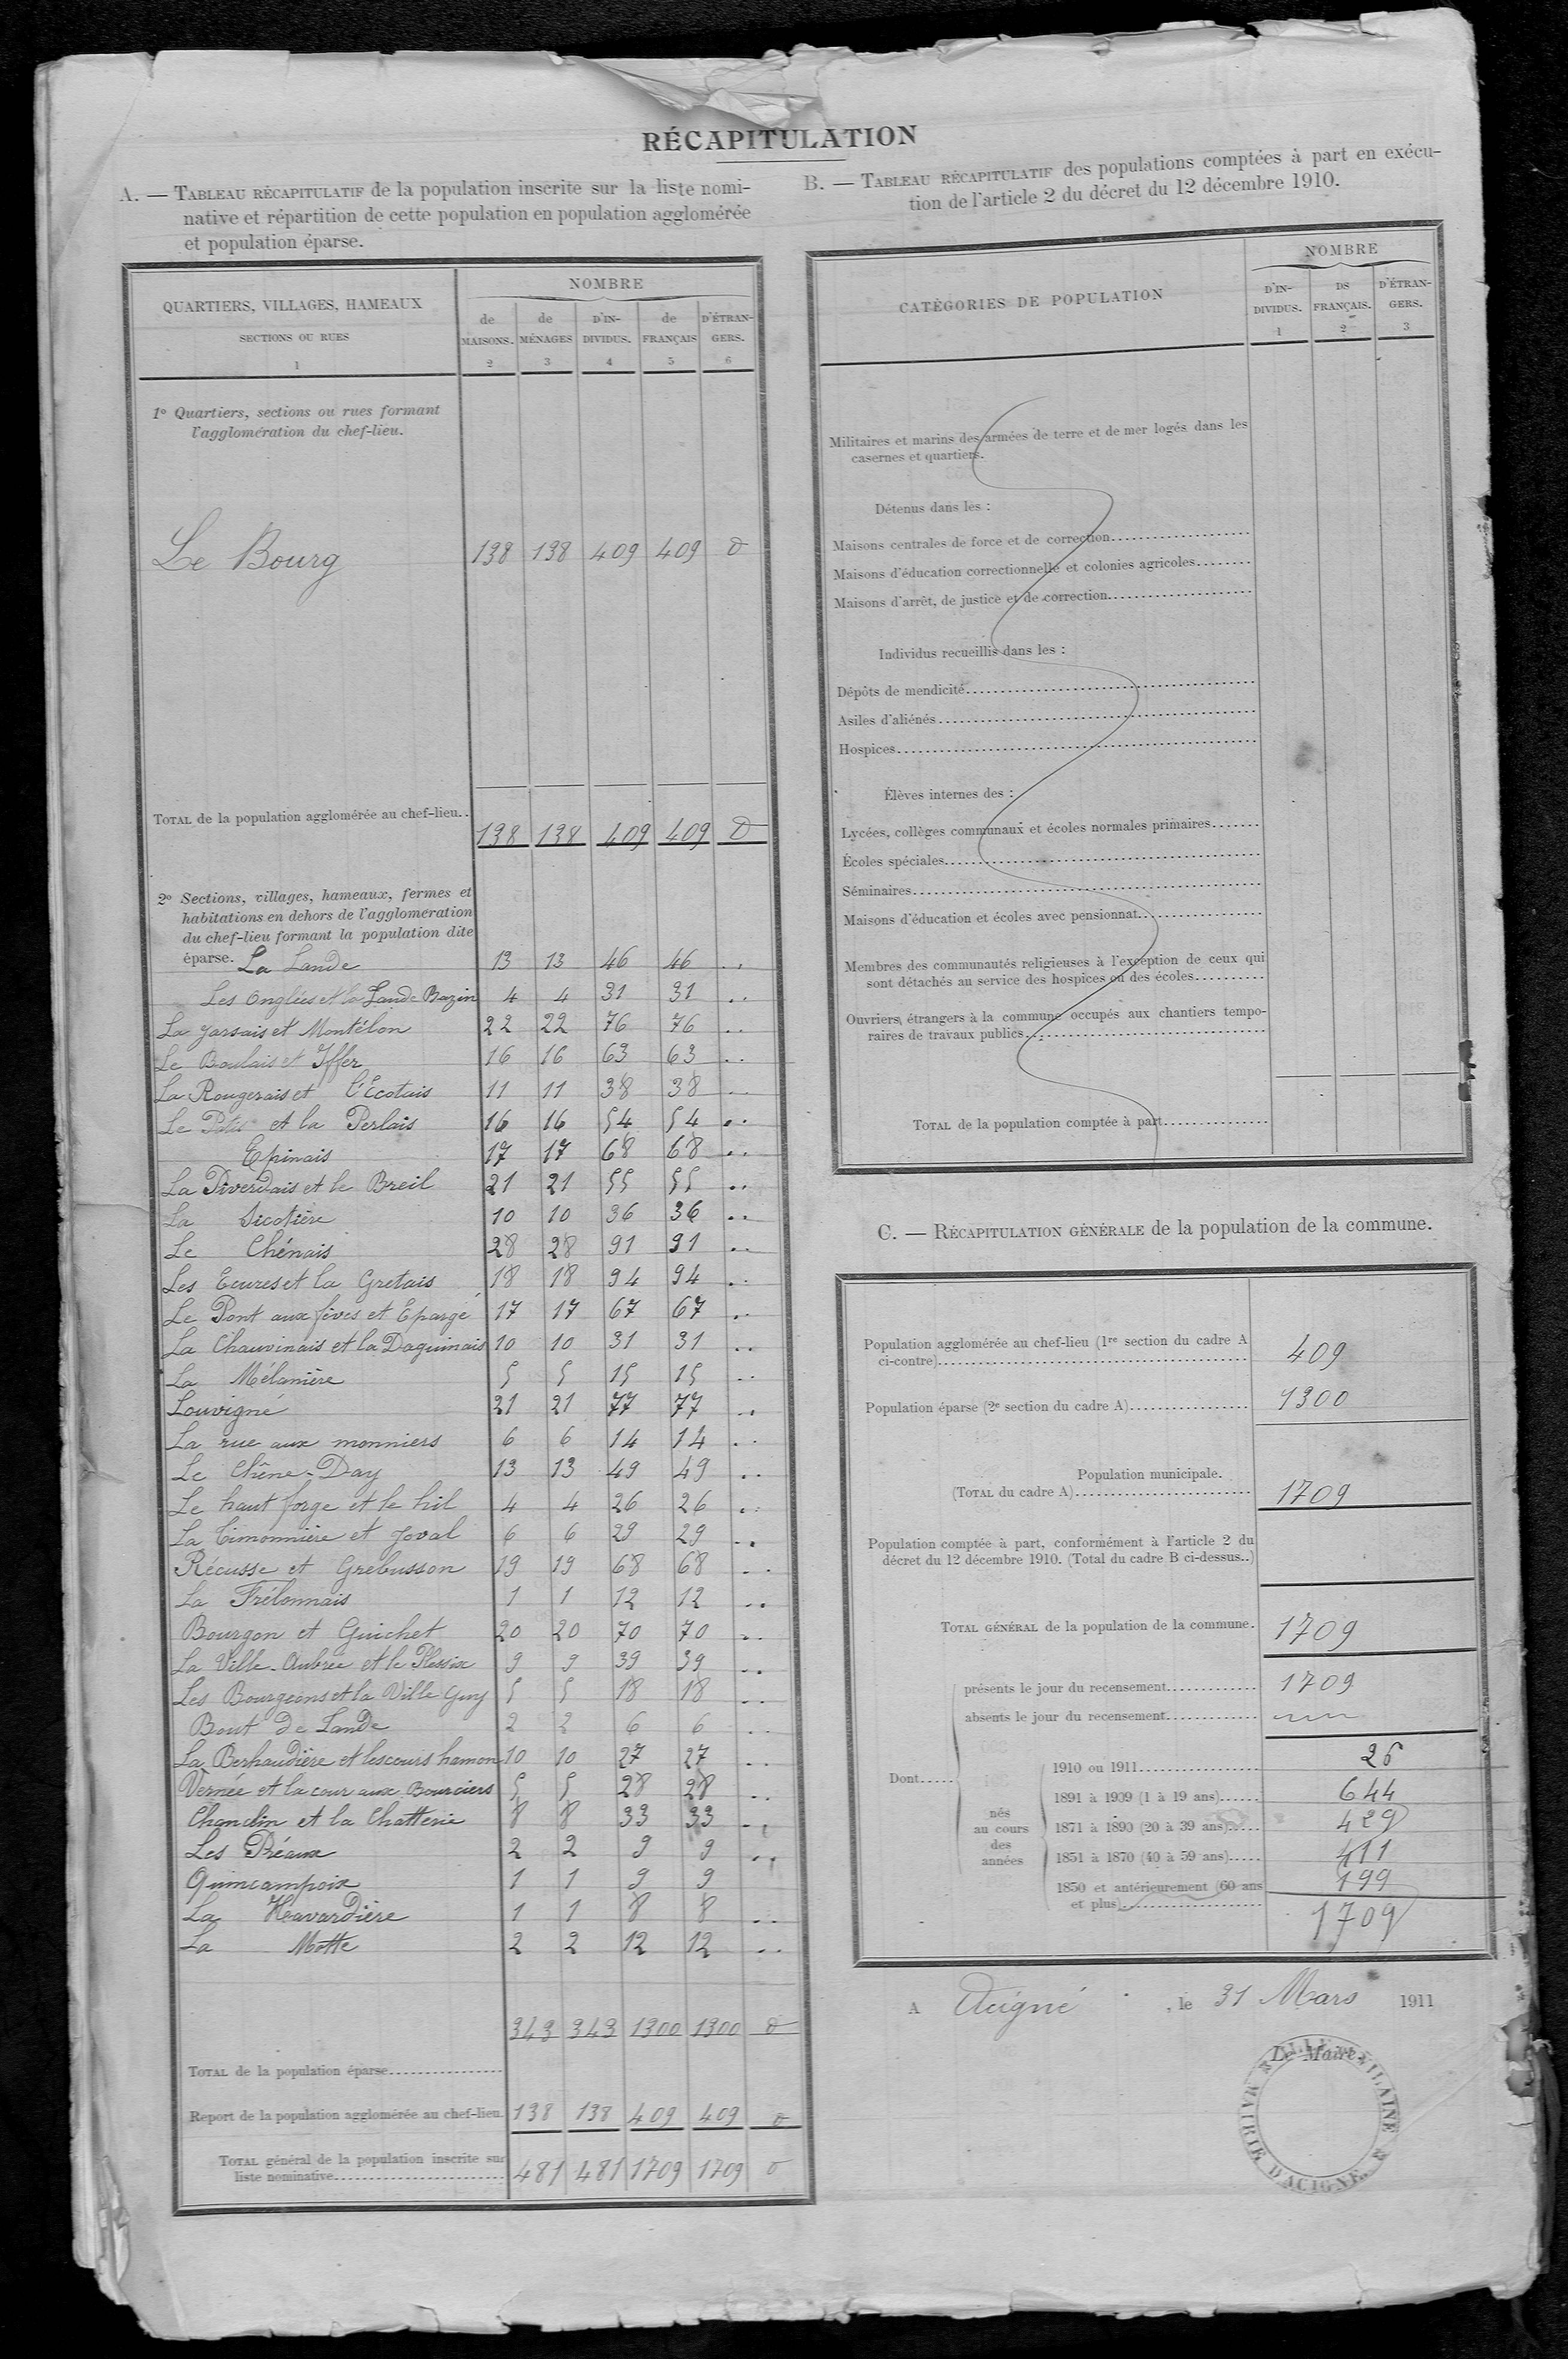 RÉCAPITULATION
A. — TABLEAU RÉCAPITULATIF de la population inscrite sur la liste nomi-
native et répartition de cette population en population agglomérée
et population éparse.
QUARTIERS, VILLAGES, HAMEAUX
SECTIONS OU RUES
1
NOMBRE
de MAISONS. 2
de MÉNAGES 3
D'IN-DIVIDUS. 4
de FRANÇAIS 5
D'ÉTRAN-GERS. 6
1º Quartiers, sections ou rues formant
l'agglomération du chef-lieu.
Le Bourg 138 138 409 409 0
TOTAL de la population agglomérée au chef-lieu.. 138 138 409 409 0
2º Sections, villages, hameaux, fermes et
habitations en dehors de l'agglomération
du chef-lieu formant la population dite
éparse. La Lande 13 13 46 46 ..
Les Onglées et la Lande Bazin 4 4 31 31 ..
La Jarsais et Montélon 22 22 76 76 ..
Le Boulais et Iffer 16 16 63 63 ..
La Rougerais et l'Ecotais 11 11 38 38 ..
Le Patis et la Perlais 16 16 54 54 ..
Epinais 17 17 68 68 ..
La Piverdais et le Breil 21 21 55 55 ..
La Sicotière 10 10 36 36 ..
Le Chénais 28 28 91 91 ..
Les Ecures et la Gretais 18 18 94 94 ..
Le Pont aux fèves et Epargé 17 17 67 67 ..
La Chauvinais et la Daguinais 10 10 31 31 ..
La Mélanière 5 5 15 15 ..
Louvigné 21 21 77 77 ..
La rue aux monniers 6 6 14 14 ..
Le Chêne-Day 13 13 49 49 ..
Le haut forge et le hil 4 4 26 26 ..
La Timonnière et Joval 6 6 29 29 ..
Récusse et Grébusson 19 19 68 68 ..
La Frélonnais 1 1 12 12 ..
Bourgon et Guichet 20 20 70 70 ..
La Ville-Aubrée et le Plessix 9 9 39 39 ..
Les Bourgeons et la Ville Guy 5 5 18 18 ..
Bout de Lande 2 2 6 6 ..
La Berhaudière et les cours hamon 10 10 27 27 ..
Vernée et la cour aux Bourciers 5 5 28 28 ..
Chandin et la Chatterie 8 8 33 33 ..
Les Préaux 2 2 9 9 ..
Quincampoix 1 1 9 9
La Havardière 1 1 8 8 ..
La Motte 2 2 12 12 ..
343 343 1300 1300 0
TOTAL de la population éparse
Report de la population agglomérée au chef-lieu. 138 138 409 409 0
TOTAL général de la population inscrite sur
liste nominative 481 481 1709 1709 0
B. — TABLEAU RÉCAPITULATIF des populations comptées à part en exécu-
tion de l'article 2 du décret du 12 décembre 1910.
CATÉGORIES DE POPULATION
NOMBRE
D'IN-DIVIDUS. 1
DS FRANÇAIS. 2
D'ÉTRAN-GERS. 3
Militaires et marins des armées de terre et de mer logés dans les
casernes et quartiers.
Détenus dans les :
Maisons centrales de force et de correction
Maisons d'éducation correctionnelle et colonies agricoles
Maisons d'arrêt, de justice et de correction
Individus recueillis dans les :
Dépôts de mendicité
Asiles d'aliénés
Hospices
Élèves internes des :
Lycées, collèges communaux et écoles normales primaires
Écoles spéciales
Séminaires
Maisons d'éducation et écoles avec pensionnat
Membres des communautés religieuses à l'exception de ceux qui
sont détachés au service des hospices ou des écoles
Ouvriers étrangers à la commune occupés aux chantiers tempo-
raires de travaux publics
TOTAL de la population comptée à part
C. — RÉCAPITULATION GÉNÉRALE de la population de la commune.
Population agglomérée au chef-lieu (1re section du cadre A
ci-contre) 409
Population éparse (2e section du cadre A) 1300
Population municipale.
(TOTAL du cadre A) 1709
Population comptée à part, conformément à l'article 2 du
décret du 12 décembre 1910. (Total du cadre B ci-dessus..)
TOTAL GÉNÉRAL de la population de la commune. 1709
Dont
présents le jour du recensement 1709
absents le jour du recensement
nés
au cours
des
années
1910 ou 1911 26
1891 à 1909 (1 à 19 ans) 644
1871 à 1890 (20 à 39 ans) 429
1851 à 1870 (40 à 59 ans) 411
1850 et antérieurement (60 ans
et plus) 199
1709
A Acigné , le 31 Mars 1911
Le Maire,
MAIRIE D'ACIGNÉ